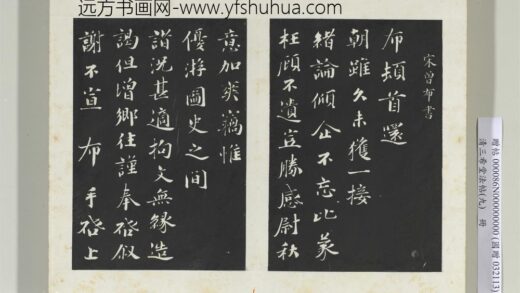 远方书画网-www.yfshuhua.com
宋曾布書
布頓首還
朝雖久未獲一接
緒論傾企不忘比蒙
枉顧不遺豈勝感尉秋
意加爽竊惟
優游圖史之間
詣況甚適拘文無緣造
謁但增鄉往謹奉啓敘
謝不宣 布 手啓上
贈帖 000086N000000000 (因贈 032113)
清三希堂法帖(九) 冊